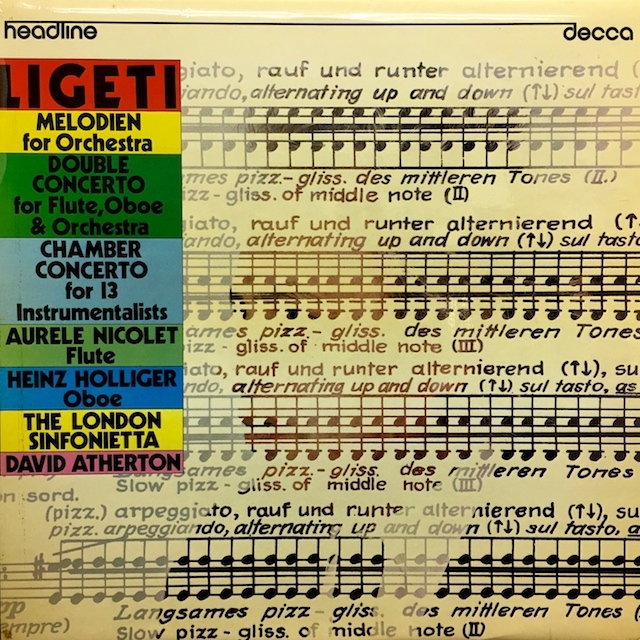 headline
decca
LIGETI
MELODIEN
for Orchestra
DOUBLE
CONCERTO
for Flute, Oboe
& Orchestra
CHAMBER
CONCERTO
for 13
Instrumentalists
AURELE NICOLET
Flute
HEINZ HOLLIGER
Oboe
THE LONDON
SINFONIETTA
DAVID ATHERTON
rauf und runter alternierend (
alternating up and down (↑↓) sul tast
pizz.-gliss. des mittleren Tones (II.)
gliss. of middle note (II)
rauf und runter alternierend (↑
alternating up and down (↑↓) sul tasto
pizz.-gliss. des mittleren Tones
gliss. of middle note (III)
rauf und runter alternierend (↑↓), su
alternating up and down (↑↓) sul tasto, as
Langsames pizz.-gliss. des mittleren Tones
on sord.
Slow pizz-gliss. of middle note (III)
(pizz.) arpeggiato, rauf und runter alternierend (↑↓), su
pizz. arpeggiando, alternating up and down (↑↓) sul tasto, a
pp
empre)
Langsames pizz-gliss. des mittleren Tones (
Slow pizz-gliss. of middle note (II)